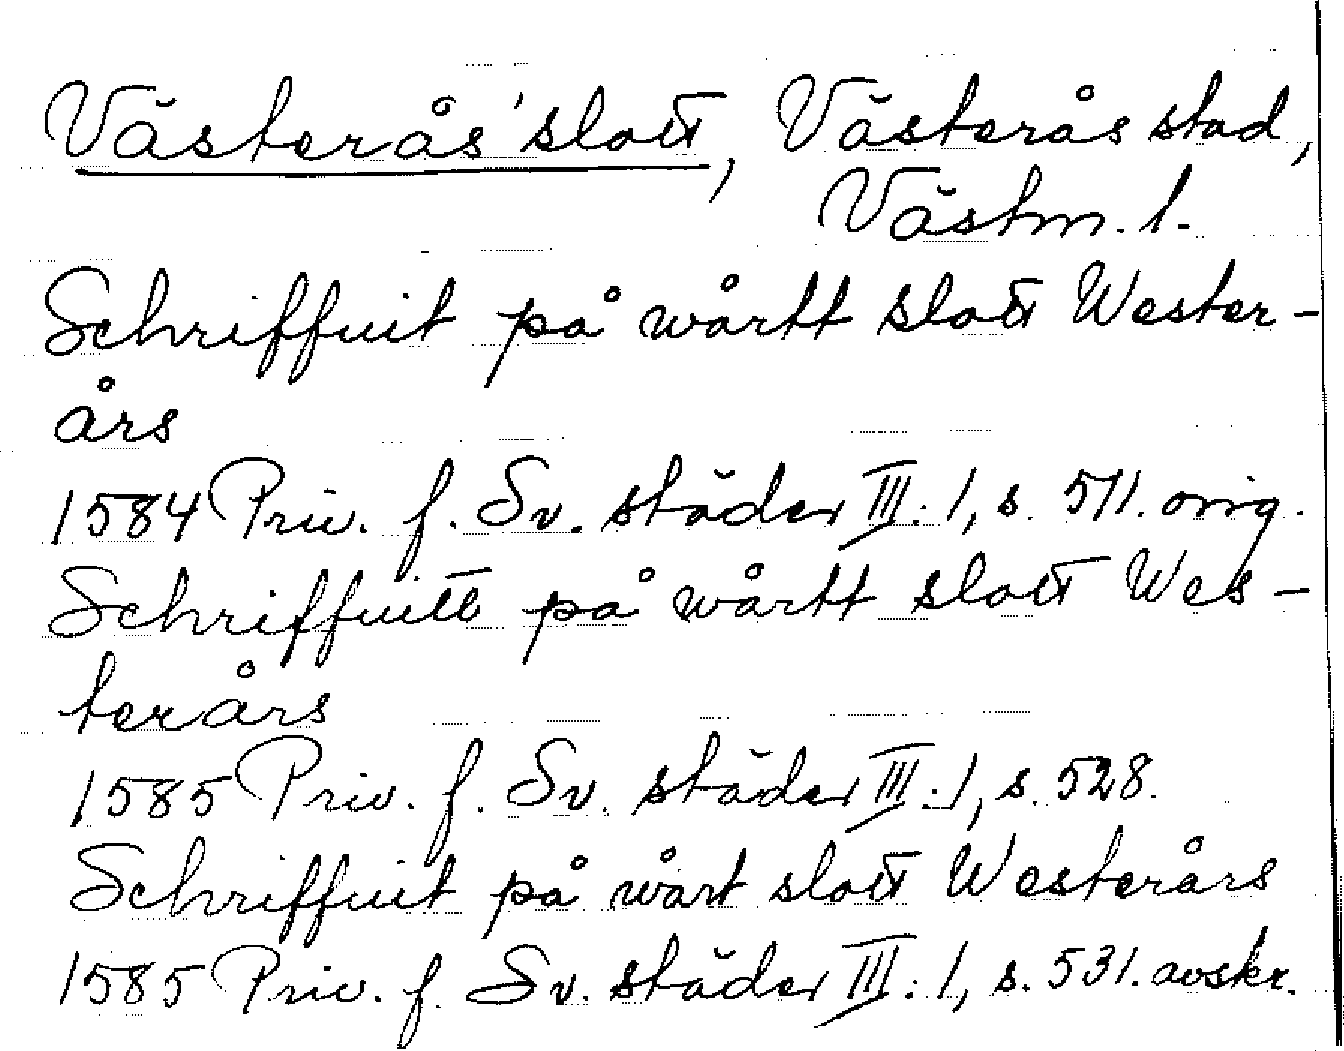 Västerås 'slott, Västerås stad,
Västm. l.
Schriffuit på wårtt slott Wester-
års
1584 Priv. f. Sv. städer III:1, s. 511. orig.
Schriffuitt på wårtt slott Wes-
terårs
1585 Priv. f. Sv. städer III:1, s. 528.
Schriffuit på wårt slott Westerårs
1585 Priv. f. Sv. städer III:1, s. 531. avskr.